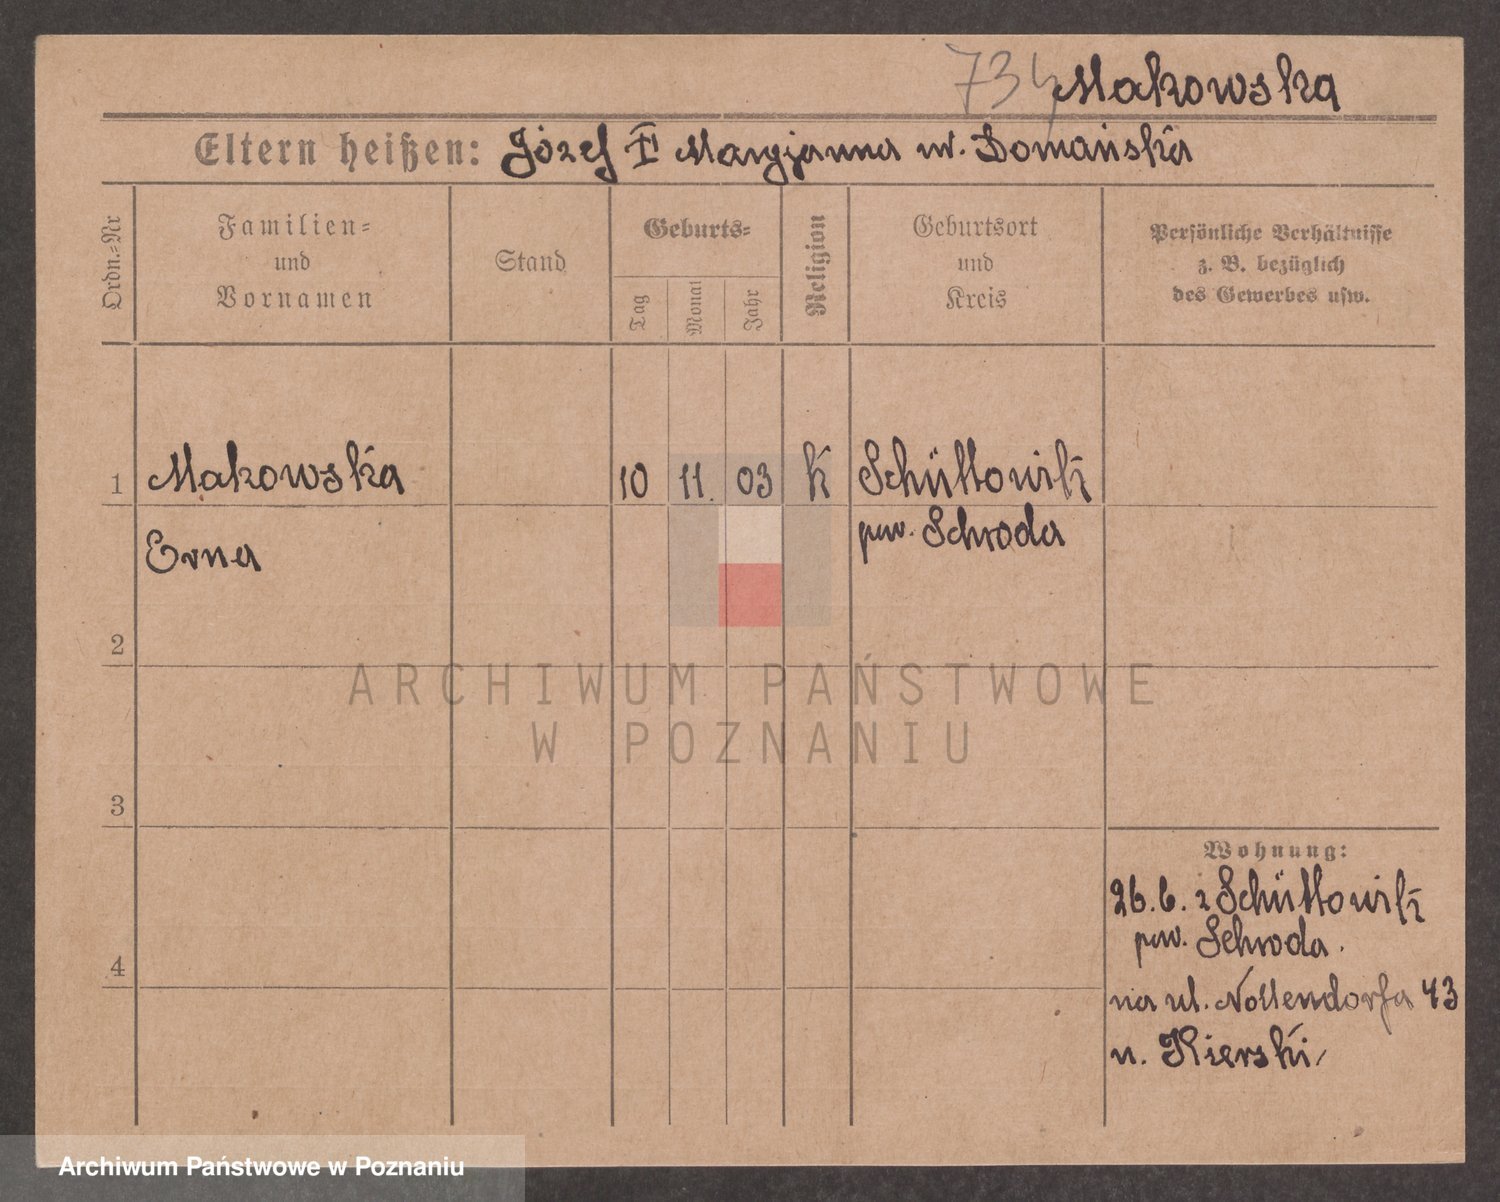 734 Makowska
Eltern heißen: Józef i Maryjanna w. Domańska
Ordn.=Nr
Familien=
und
Vornamen
Stand
Geburts=
Tag
Monat
Jahr
Religion
Geburtsort
und
Kreis
Persönliche Verhältnisse
z. B. bezüglich
des Gewerbes usw.
1 Makowska 10 11. 03 K
Erna pow. Schroda
2
3
4
Wohnung:
26.6. z
pow. Schroda.
na ul. Nollendorfa 43
u. Kierski
ARCHIWUM PAŃSTWOWE
W POZNANIU
Archiwum Państwowe w Poznaniu